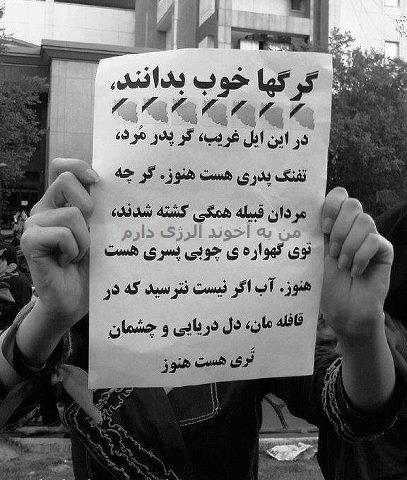 گرگها خوب بدانند،
در این ایل غریب، گر پدر مُرد،
تفنگ پدری هست هنوز. گر چه
مردان قبیله همگی کشته شدند،
من به آخوند آلرژی دارم
توی گهواره ی چوبی پسری هست
هنوز. آب اگر نیست نترسید که در
قافله مان، دل دریایی و چشمانِ
تَری هست هنوز